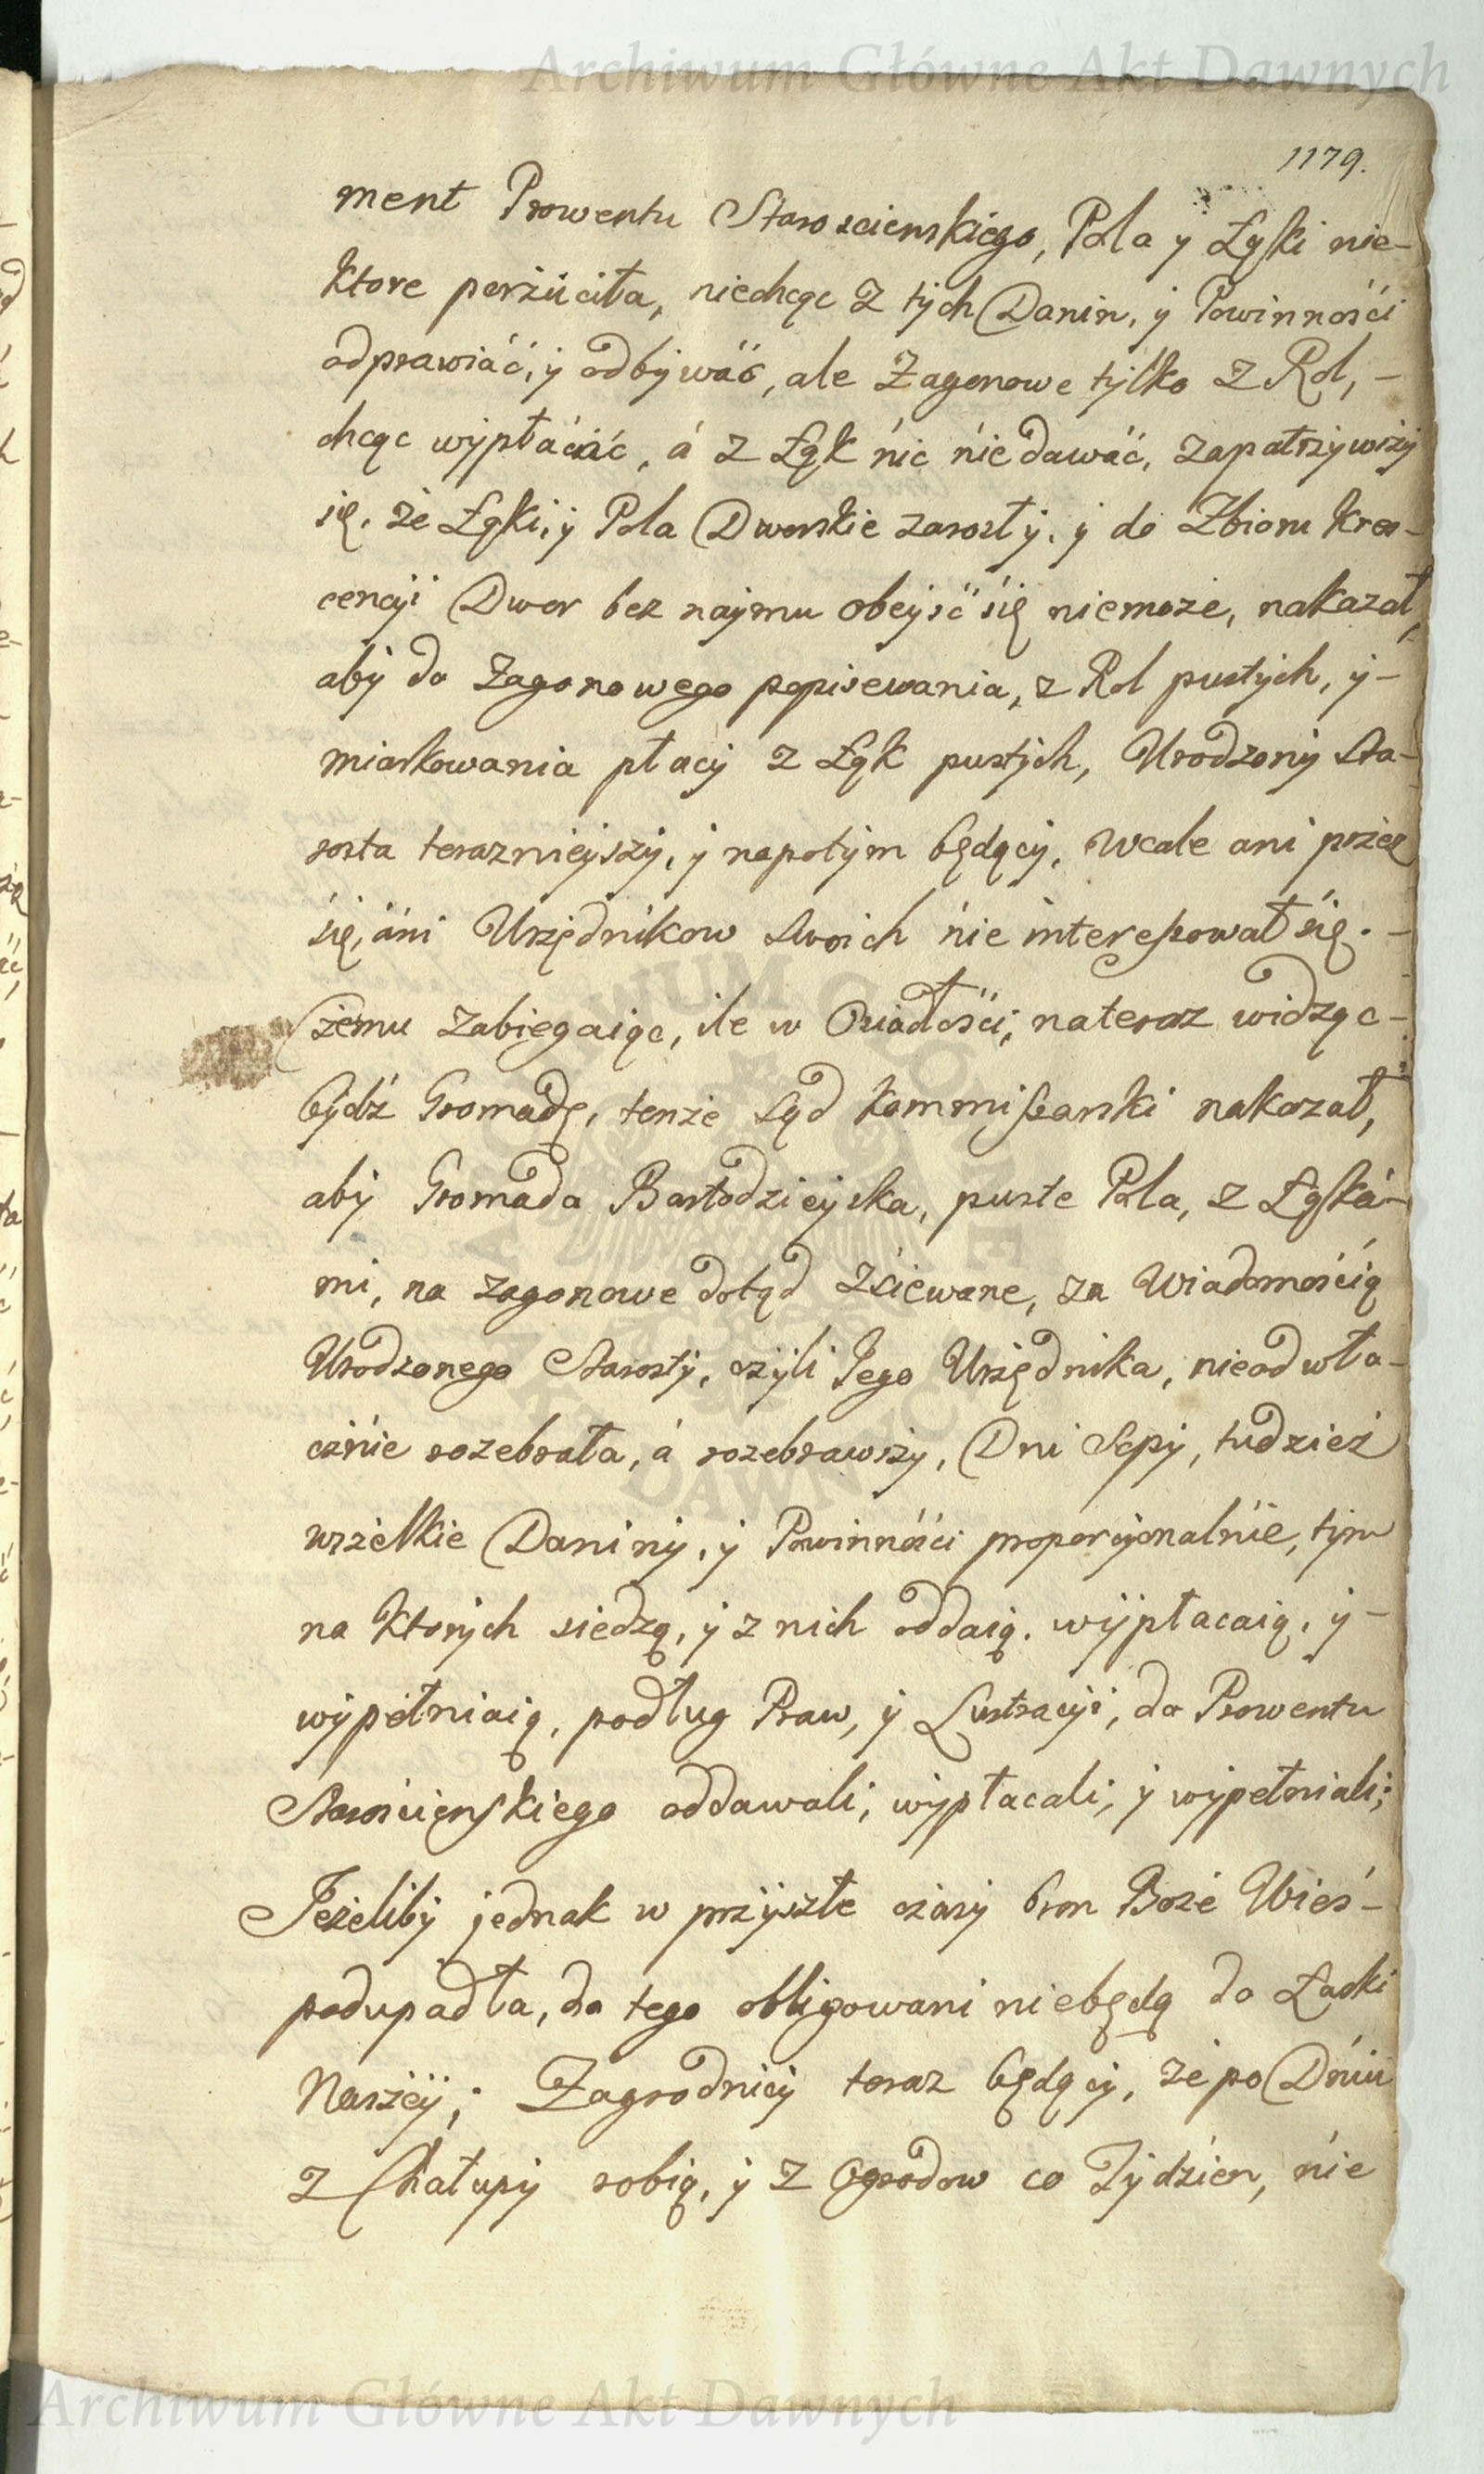 Archiwum Główne Akt Dawnych
1179.
ment Prowentu Staroscienskiego, Pola y Łąki nie-
ktore porzúciła, niechcąc z tych Danin, y Powinnośći
odprawiáć, y odbywáć, ale Zagonowe tylko z Rol, -
chcąc wypłáćáć, á z Łąk ńic ńie dawáć, zapatrzywszy
się, że Łąki, y Pola Dworskie zarosły, y do Zbioru kres-
cencyi Dwor bez naymu obeyść śię niemoże, nakazał,
aby do Zagonowego popisewania, z Rol pustych, y -
miarkowania płacy z Łąk pustych, Urodzony Sta-
rosta teraznieyszy, y napotym będący, wcale ani przez
śię, áni Urzędnikow swoich ńie interessował śię. -
Czemu zabiegaiąc, ile w Osiadłośći, nateraz widząc -
bydź Gromadę, tenże Sąd Kommissarski nakazał,
aby Gromada Bartodzieyska, puste Pola, z Łąká-
mi, na zagonowe dotąd zśiewane, za Wiadomośćią
Urodzonego Starosty, czyli Jego Urzędnika, nieodwła-
cznie rozebrała, á rozebrawszy, Dni Sepy, tudzież
wszelkie Daniny, y Powinnośći proporcyonalńie, tym
na ktorych siedzą, y z nich oddaią, wypłacaią, y -
wypełniaią, podług Praw, y Lustracyi, do Prowentu
Starościenskiego oddawali, wypłacali, y wypełniali;
Jeżeliby jednak w przyszłe czasy bron Boże Wieś -
podupadła, do tego obligowani niebędą do Łaski
Naszey; Zagrodnicy teraz będący, że po Dńiu
z Chałupy robią, y z Ogrodow co Tydzien, ńie
Archiwum Główne Akt Dawnych